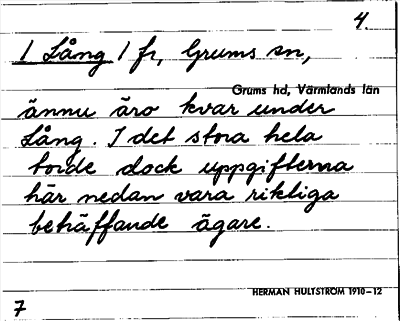 4.
1 Lång 1 fr, Grums sn,
Grums hd, Värmlands län
ännu äro kvar under
Lång. I det stora hela
torde dock uppgifterna
här nedan vara riktiga
beträffande ägare.
HERMAN HULTSTRÖM 1910-12
7